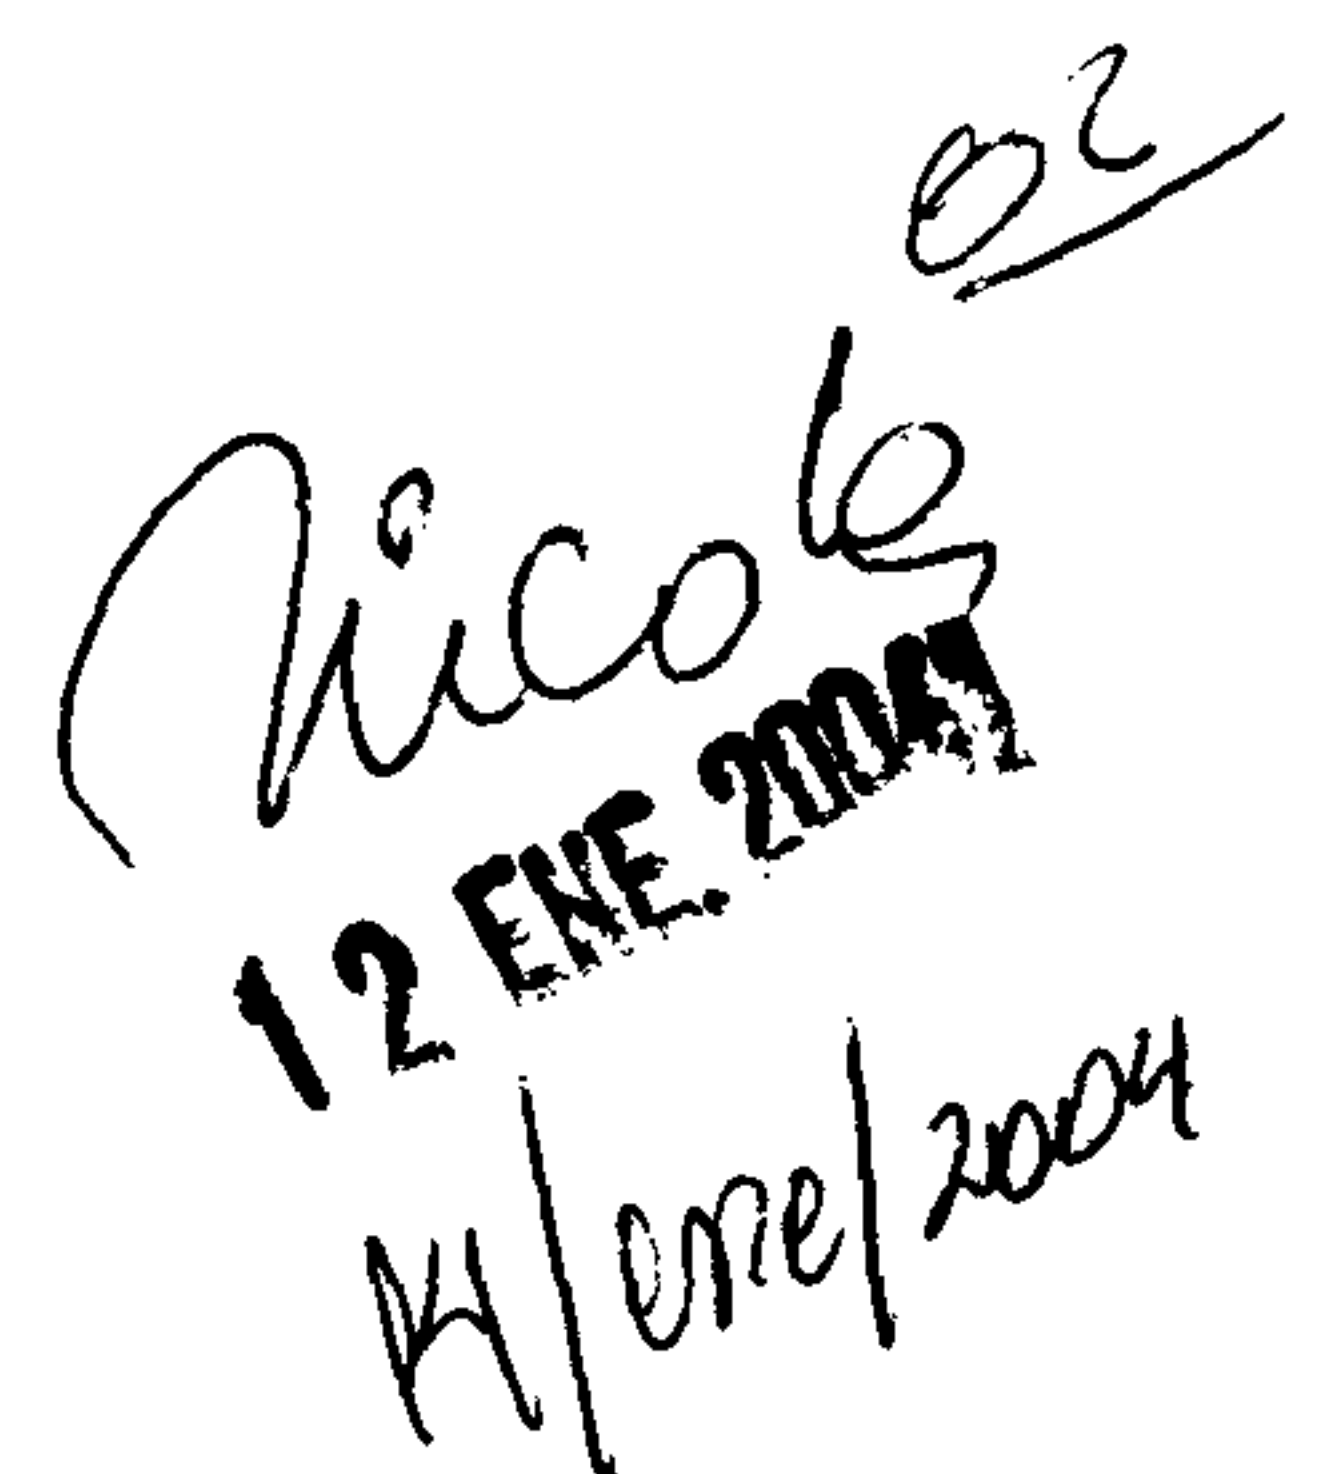 02
Nicole
12 ENE. 2004
14/ene/2004